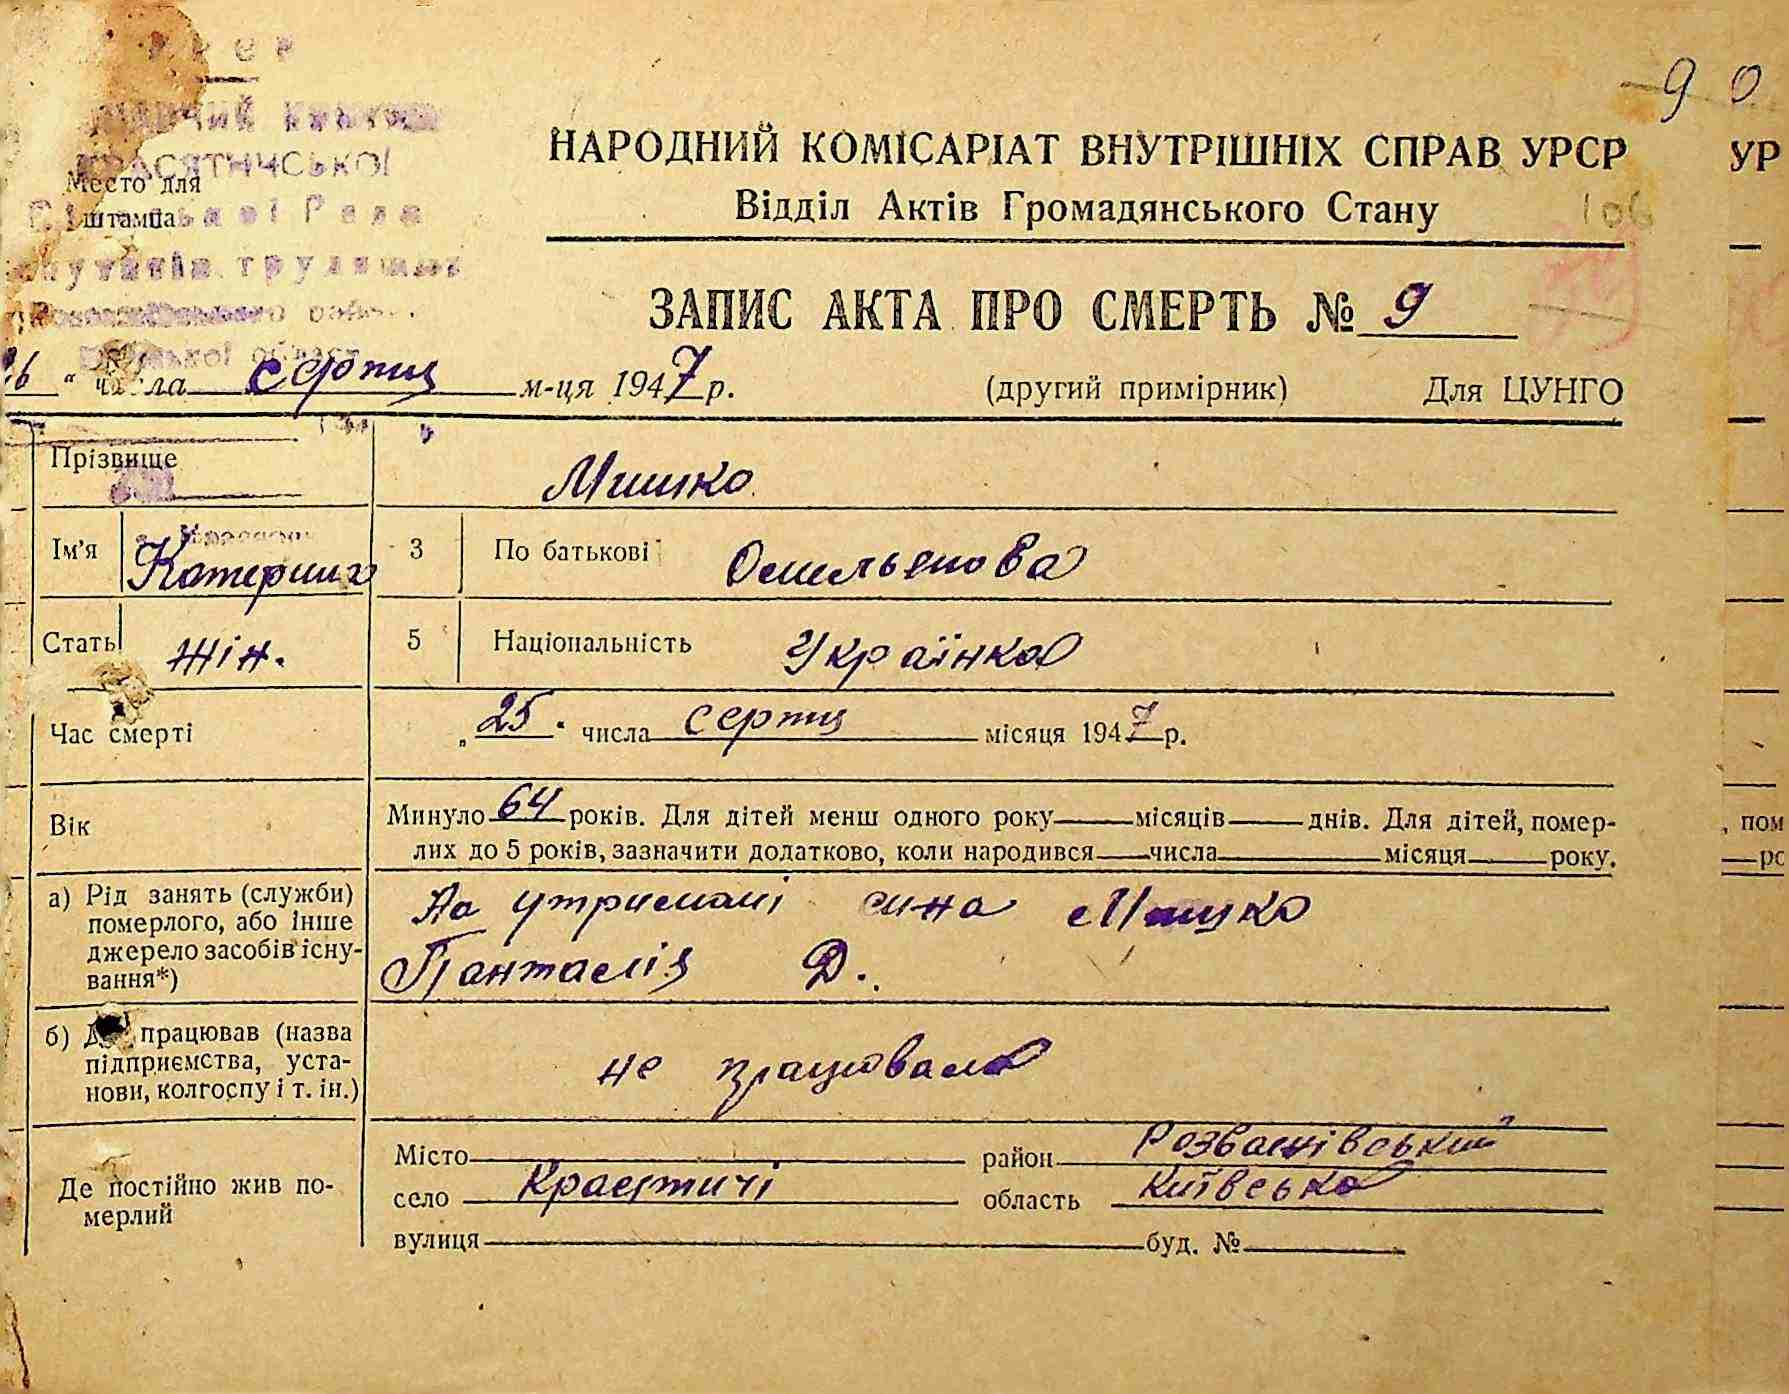 90
КРАСЯТИЧСЬКОЇ
Место для
штампа
НАРОДНИЙ КОМІСАРІАТ ВНУТРІШНІХ СПРАВ УРСР
УР
Відділ Актів Громадянського Стану
106
ЗАПИС АКТА ПРО СМЕРТЬ № 9
26 " числа серпня м-ця 1947 р.
(другий примірник) Для ЦУНГО
Прізвище Мишко
Ім'я Катерина 3 По батькові Омельянова
Стать жін. 5 Національність Українка
Час смерті „25. числа серпня місяця 1947 р.
Вік Минуло 64 років. Для дітей менш одного року місяців днів. Для дітей, помер-
лих до 5 років, зазначити додатково, коли народився числа місяця року.
, пом
рс
а) Рід занять (служби) померлого, або інше джерело засобів існу-вання*)
На утримані сина Мишко
Панталія Д.
б) працював (назва підприємства, уста-нови, колгоспу і т. ін.)
не працювала
Де постійно жив по-мерлий
Місто район Розважівський
село Красятичі область Київська
вулиця буд. №